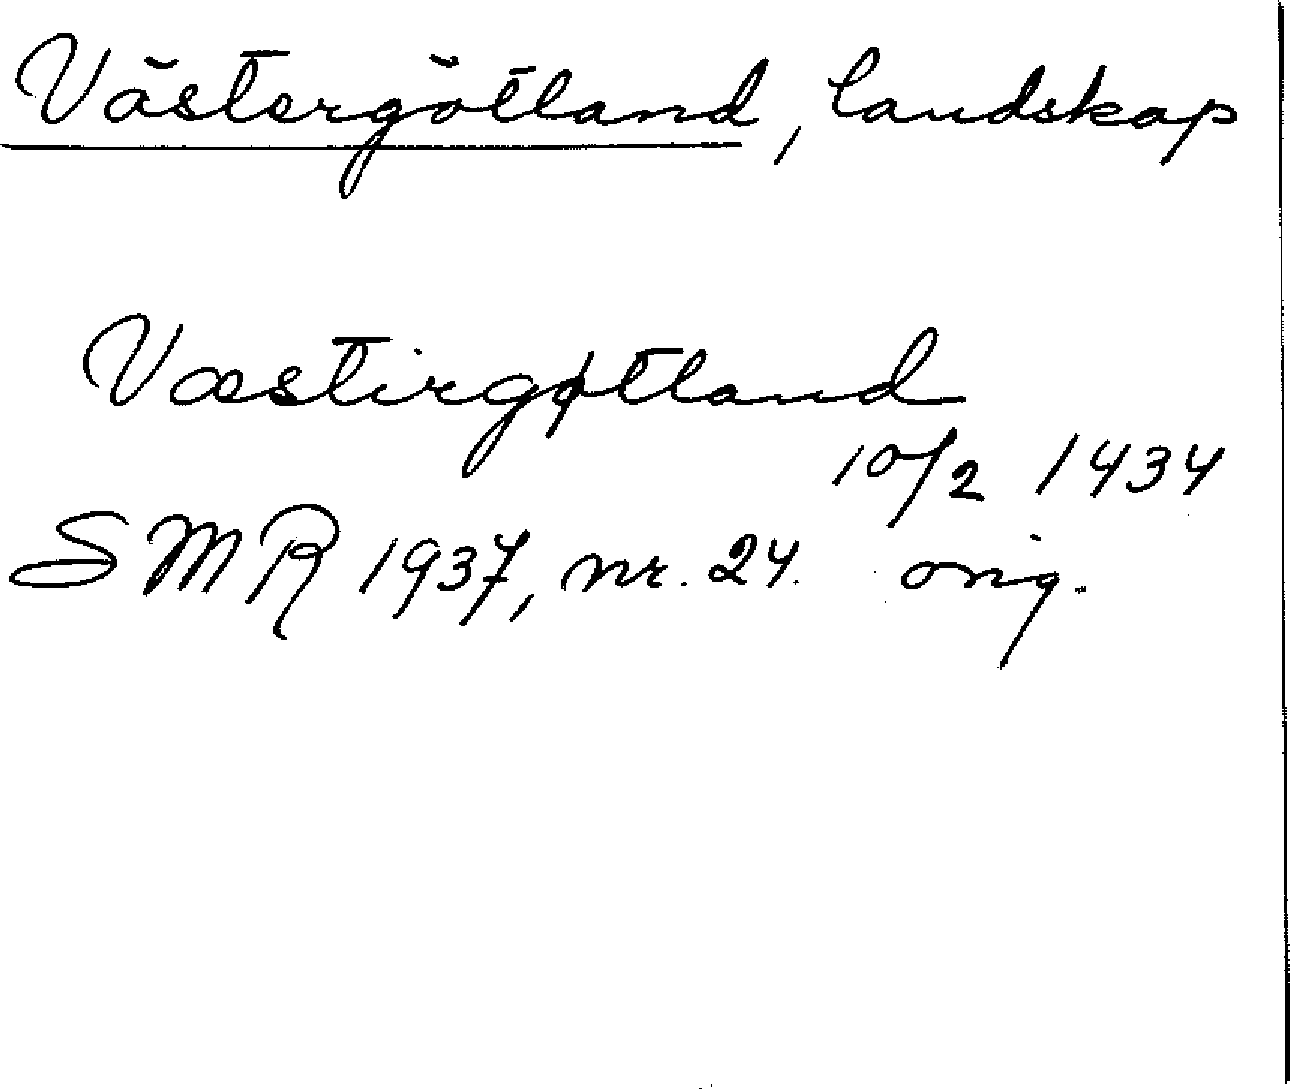 Västergötland, landskap
Væstirgøtland
10/2 1434
SMR 1937, nr. 24. orig.